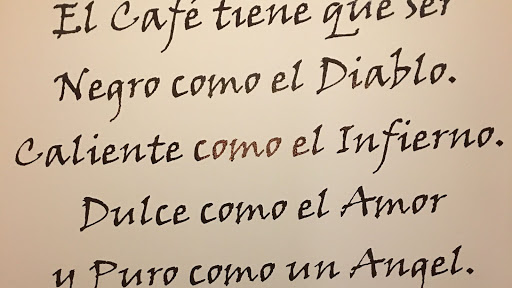 El Café tiene que ser
Negro como el Diablo.
Caliente como el Infierno.
Dulce como el Amor
y Puro como un Angel.